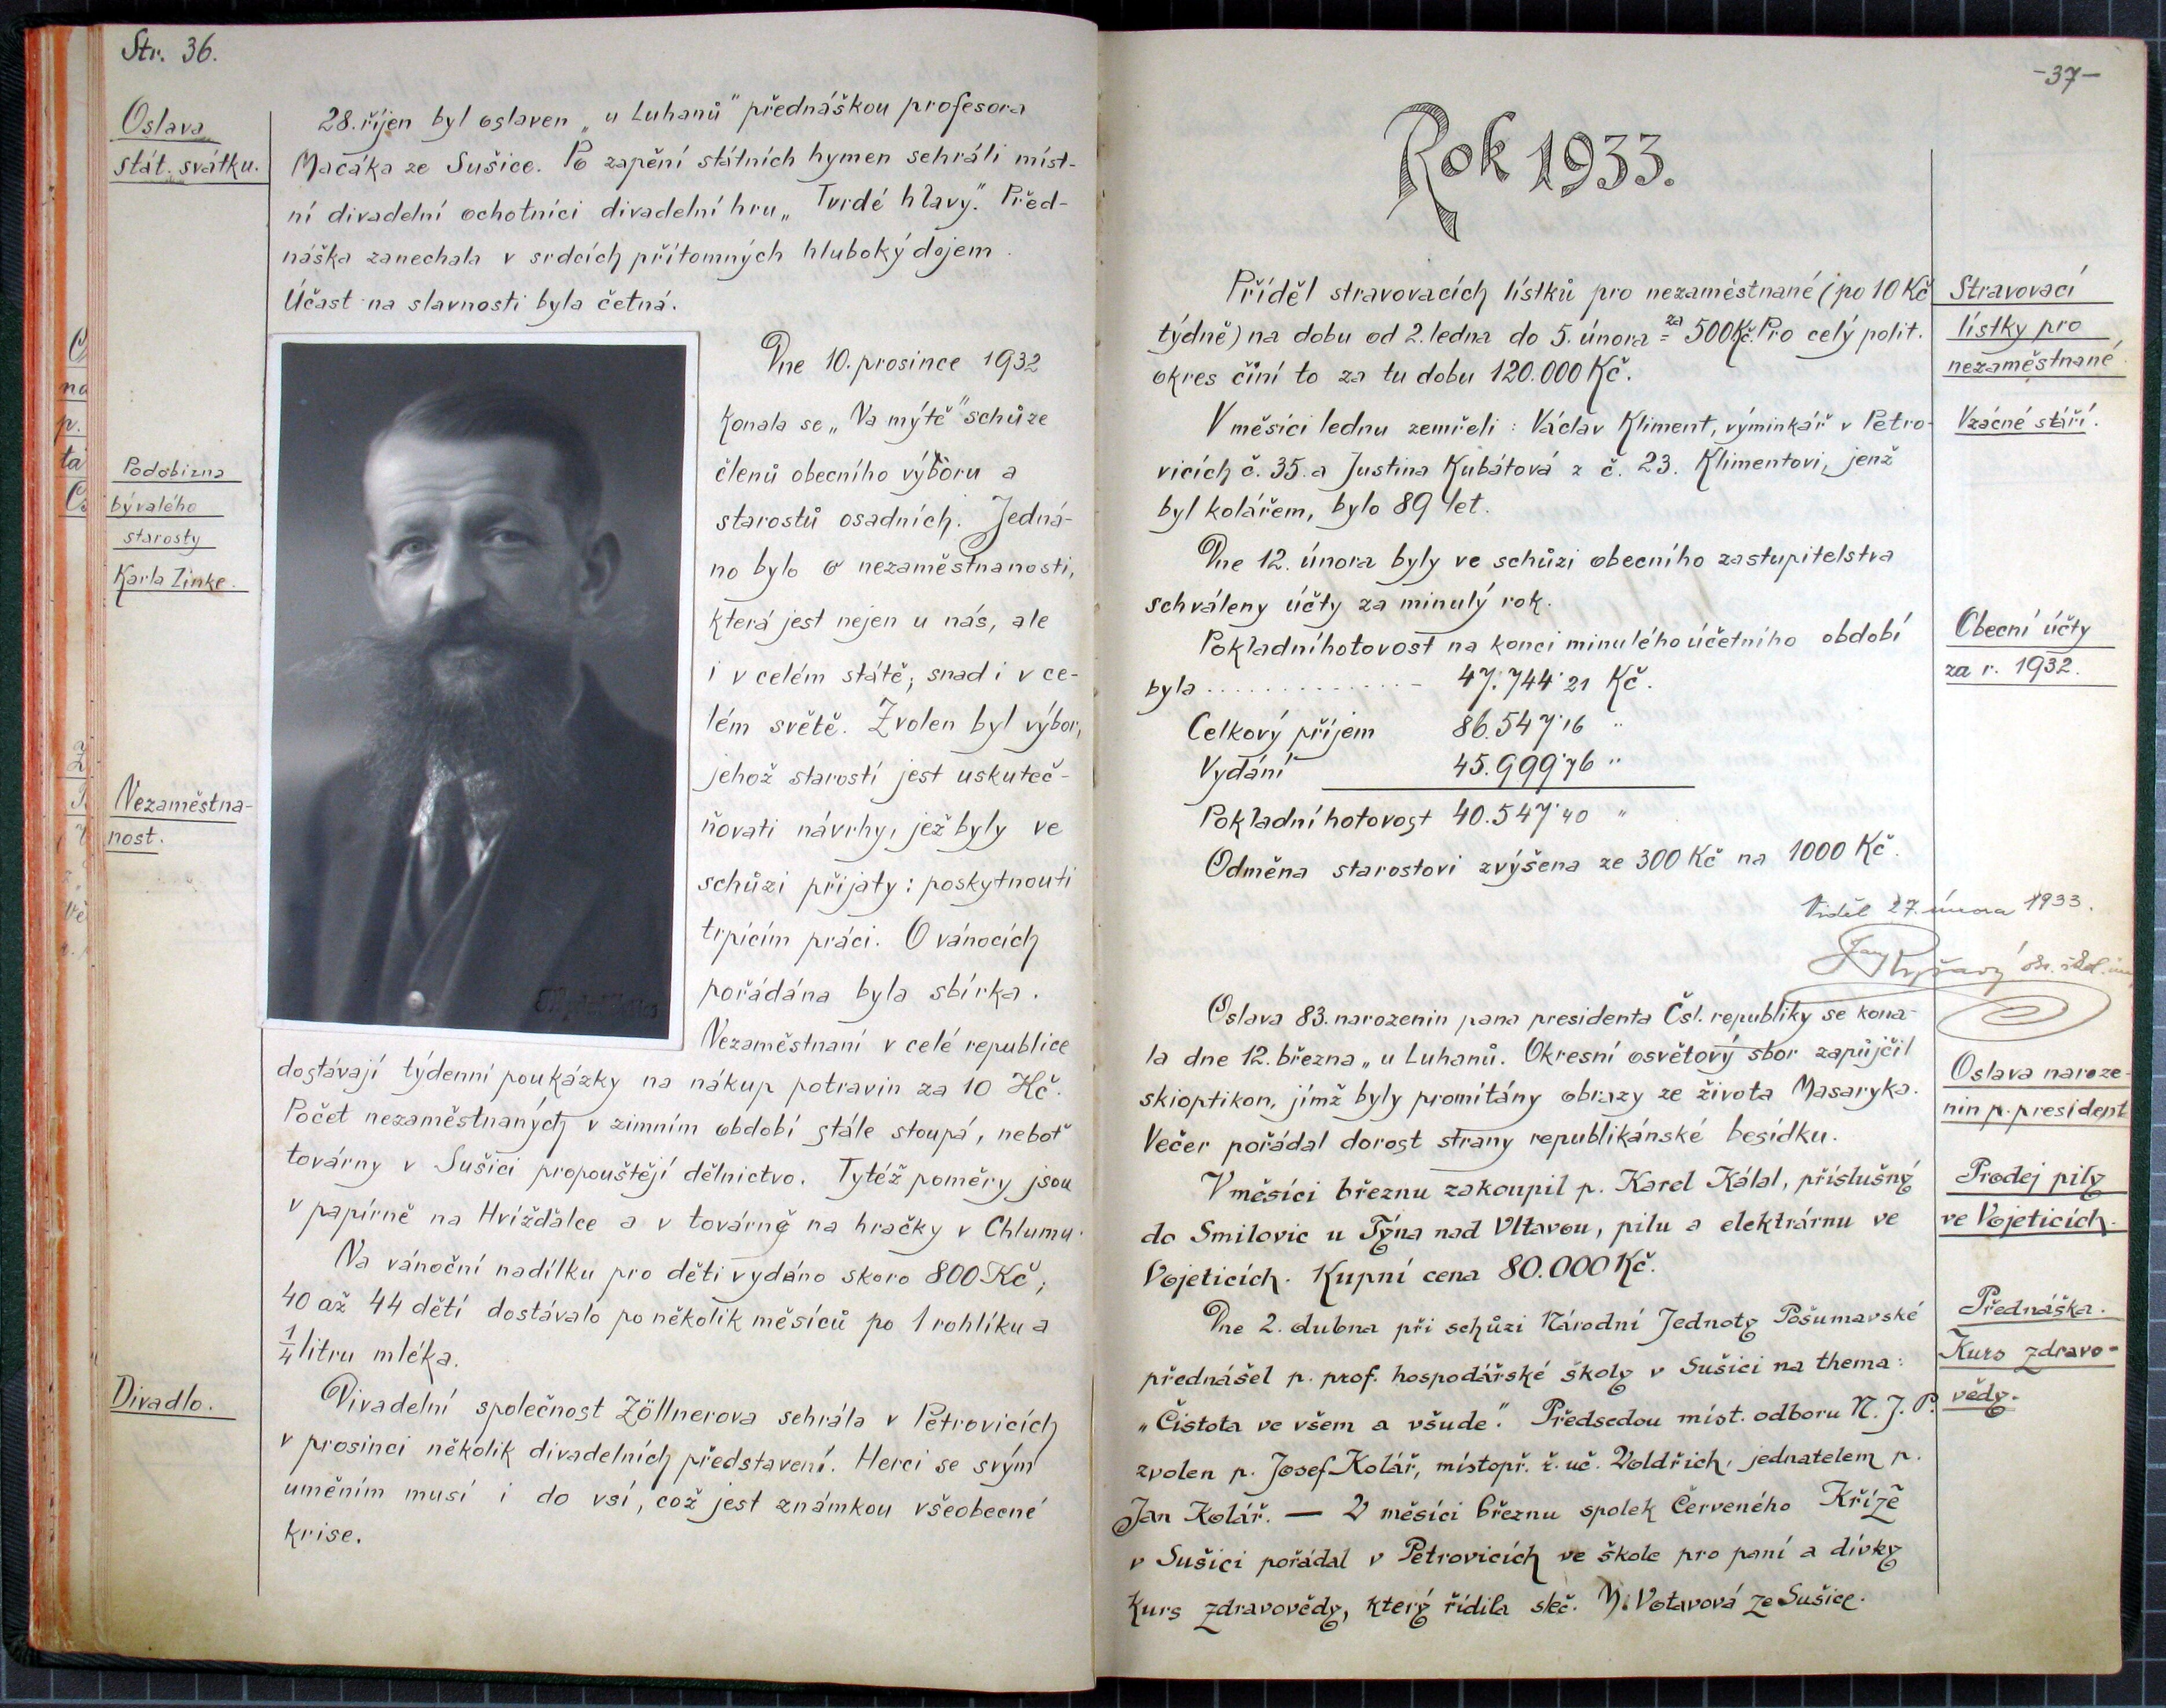 Str. 36.
Oslava
stát. svátku.
28. říjen byl oslaven „u Luhanů" přednáškou profesora
Macáka ze Sušice. Po zapění státních hymen sehráli míst-
ní divadelní ochotníci divadelní hru „Tvrdé hlavy." Před-
náška zanechala v srdcích přítomných hluboký dojem.
Účast na slavnosti byla četná.
Podobizna
bývalého
starosty
Karla Zinke.
Dne 10. prosince 1932
konala se „Na mýtě" schůze
členů obecního výboru a
starostů osadních. Jedná-
no bylo o nezaměstnanosti,
která jest nejen u nás, ale
i v celém státě; snad i v ce-
lém světě. Zvolen byl výbor,
jehož starostí jest uskuteč-
ňovati návrhy, jež byly ve
schůzi přijaty: poskytnouti
trpícím práci. O vánocích
pořádána byla sbírka.
Nezaměstnaní v celé republice
Nezaměstna-
nost.
dostávají týdenní poukázky na nákup potravin za 10 Kč.
Počet nezaměstnaných v zimním období stále stoupá, neboť
továrny v Sušici propouštějí dělnictvo. Tytéž poměry jsou
v papírně na Hvížďalce a v továrně na hračky v Chlumu.
Na vánoční nadílku pro děti vydáno skoro 800 Kč;
40 až 44 dětí dostávalo po několik měsíců po 1 rohlíku a
1/4 litru mléka.
Divadlo.
Divadelní společnost Zöllnerova sehrála v Petrovicích
v prosinci několik divadelních představení. Herci se svým
uměním musí i do vsí, což jest známkou všeobecné
krise.
-37-
Rok 1933.
Příděl stravovacích lístků pro nezaměstnané (po 10 Kč
týdně) na dobu od 2. ledna do 5. února za = 500 Kč. Pro celý polit.
okres činí to za tu dobu 120.000 Kč.
Stravovací
lístky pro
nezaměstnané.
V měsíci lednu zemřeli: Václav Kliment, výminkář v Petro-
vicích č. 35. a Justina Kubátová z č. 23. Klimentovi, jenž
byl kolářem, bylo 89 let.
Vzácné stáří.
Dne 12. února byly ve schůzi obecního zastupitelstva
schváleny účty za minulý rok.
Pokladní hotovost na konci minulého účetního období
byla .............. 47.744˙21 Kč.
Celkový příjem 86.547˙16 „
Vydání 45.999˙76 „
Pokladní hotovost 40.547˙40 „
Odměna starostovi zvýšena ze 300 Kč na 1000 Kč.
Obecní účty
za r. 1932.
Viděl 27. února 1933.
Jan
Oslava 83. narozenin pana presidenta Čsl. republiky se kona-
la dne 12. března „u Luhanů. Okresní osvětový sbor zapůjčil
skioptikon, jímž byly promítány obrazy ze života Masaryka.
Večer pořádal dorost strany republikánské besídku.
Oslava naroze-
nin p. president
V měsíci březnu zakoupil p. Karel Kálal, příslušný
do Smilovic u Týna nad Vltavou, pilu a elektrárnu ve
Vojeticích. Kupní cena 80.000 Kč.
Prodej pily
ve Vojeticích.
Dne 2. dubna při schůzi Národní Jednoty Pošumavské
přednášel p. prof. hospodářské školy v Sušici na thema:
„Čistota ve všem a všude." Předsedou míst. odboru N. J. P.
zvolen p. Josef Kolář, místopř. ř. uč. Voldřich, jednatelem p.
Jan Kolář. — V měsíci březnu spolek Červeného Kříže
v Sušici pořádal v Petrovicích ve škole pro paní a dívky
kurs zdravovědy, který řídila sleč. M. Votavová ze Sušice.
Přednáška.
Kurs zdravo-
vědy.